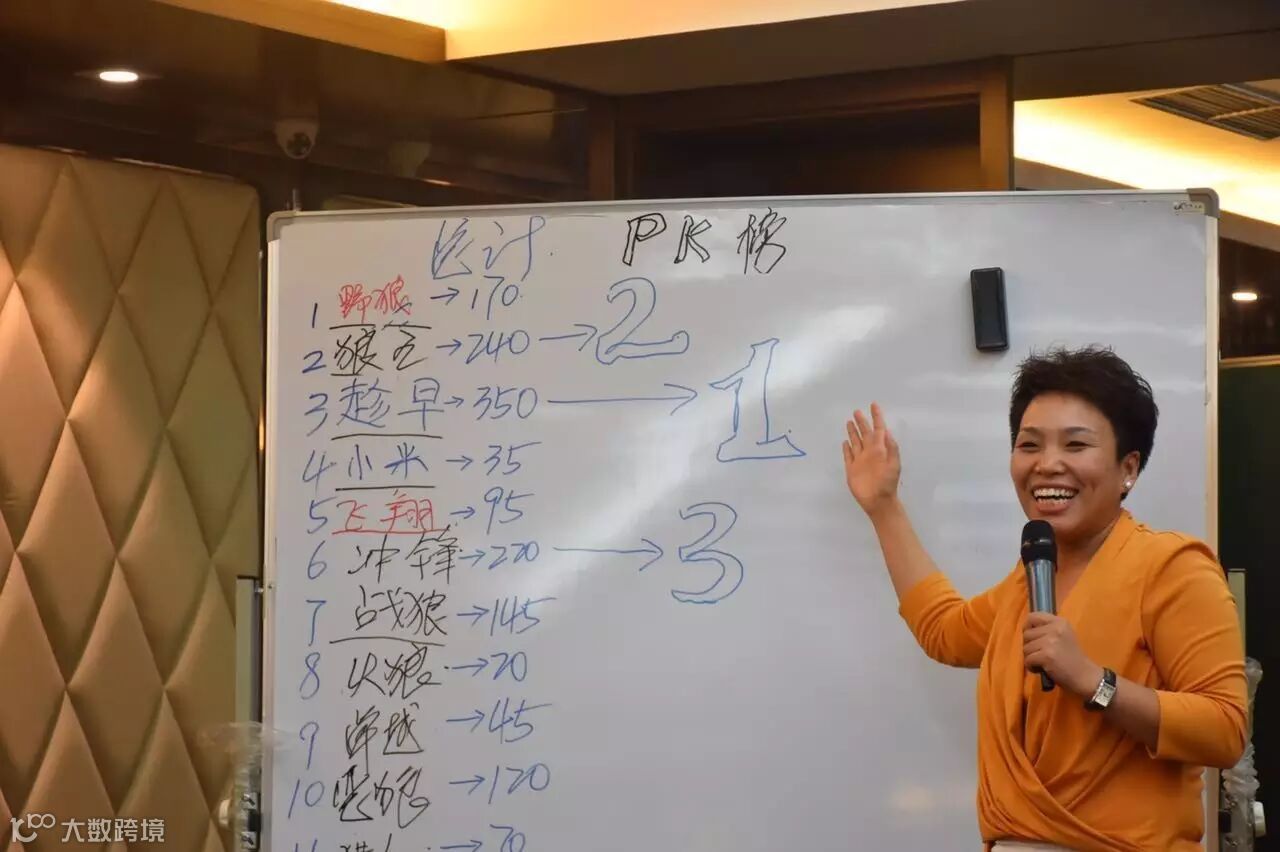 总计 PK榜
1 野狼 →170
2 狼王 →240 → 2
3 趁早 →350 → 1
4 小米 →35
5 飞翔 →95
6 冲锋 →220 → 3
7 战狼 →145
8 火狼 →20
9 卓越 →45
10 恶狼 →120
11 →70
大数跨境